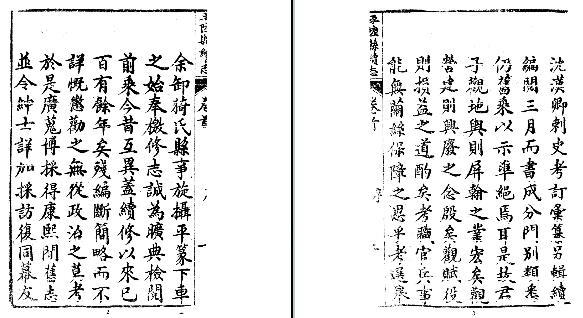 平陸縣續志 卷首 序 一
余卸猗氏縣事旋攝平篆下車
之始奉檄修志誠為曠典檢閱
前乘今昔互異蓋續修以來已
百有餘年矣殘編斷簡略而不
詳慨懲勸之無從政治之莫考
於是廣蒐博採得康熙間舊志
並令紳士詳加採訪復同幕友
沈漢卿刺史考訂彙集另輯續
編閱三月而書成分門別類悉
仍舊乘以示準繩焉耳是故君
子觀地輿則屏翰之業宏矣觀
營建則興廢之念殷矣觀賦役
則損益之道酌矣考職官兵事
能無繭絲保障之思乎考選舉
平陸縣續志 卷首 序 一